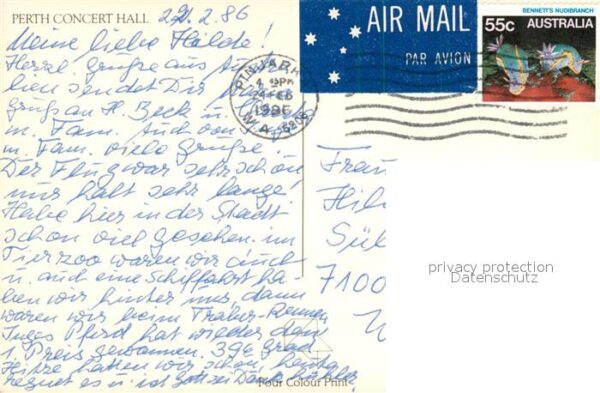 PERTH CONCERT HALL 22.2.86
AIR MAIL
PAR AVION
BENNETT'S NUDIBRANCH
55c AUSTRALIA
PINJARRA
4 PM
24 FEB
1986
W.A. 6208
Meine liebe Hilde!
Herzl. Grüße aus
lien sendet Dir
gruß an H. Beck u.
m. Fam. Auch von
m. Fam. viele Grüße
Der Flug war sehr schön
nur halt sehr lange!
Habe hier in der Stadt
schon viel gesehen. im
Tierzoo waren wir auch
u. auch eine Schiffahrt ha-
ben wir hinter uns, dann
waren wir beim Traber-Rennen
Pferd hat wieder den
1. Preis gewonnen. 39 grad
Hitze hatten wir schon, heute
regnet es u. ist Gott sei Dank kühler
Frau
Hil
Sü
7100
privacy protection
Datenschutz
Four Colour Print